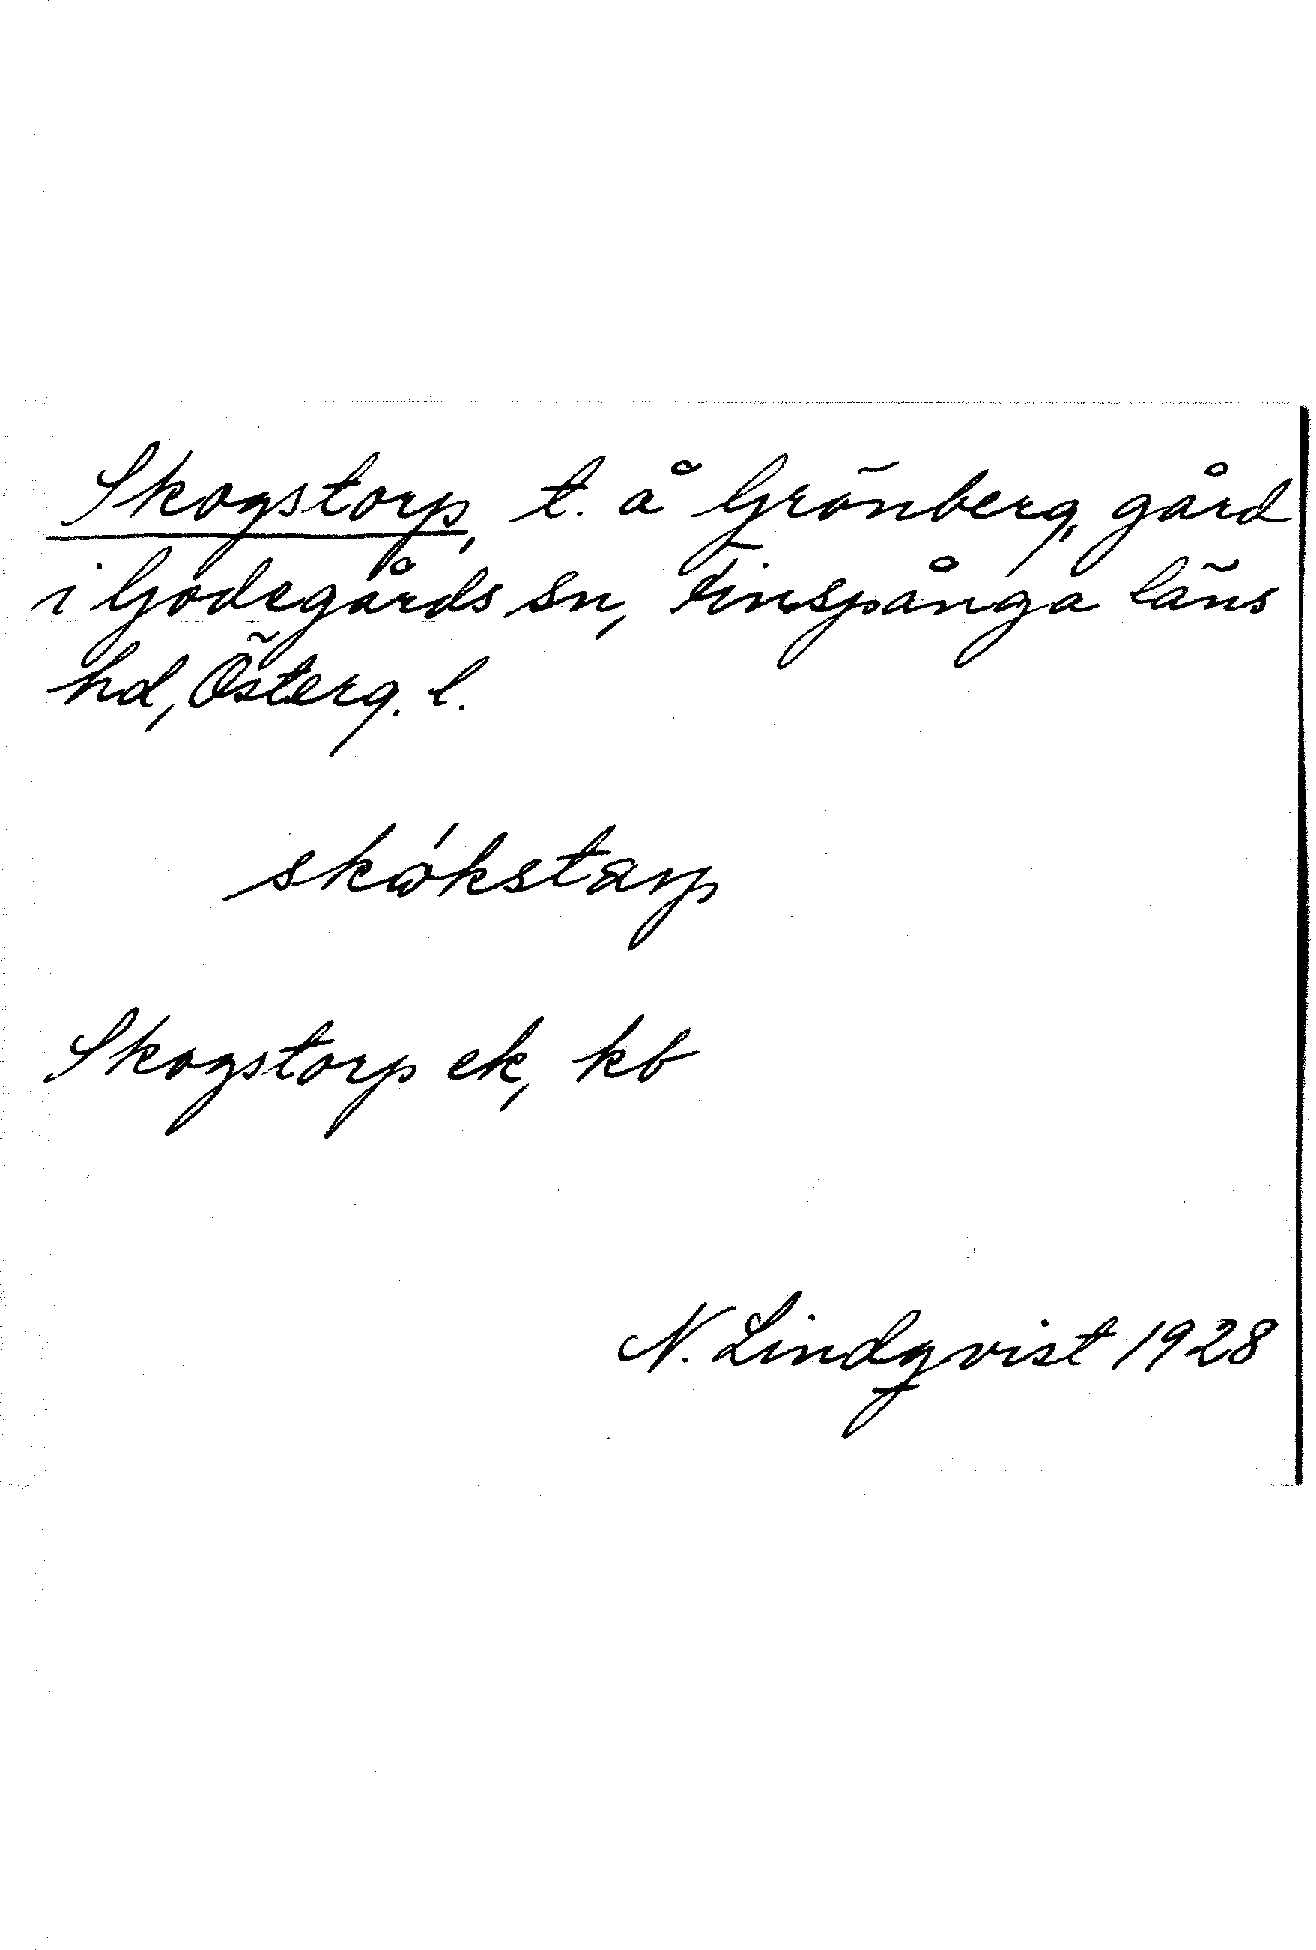 Skogstorp, t. å Grönberg, gård
i Godegårds sn, Finspånga läns
hd, Österg. l.
skώkstarp
Skogstorp ek, kb
N. Lindqvist 1928